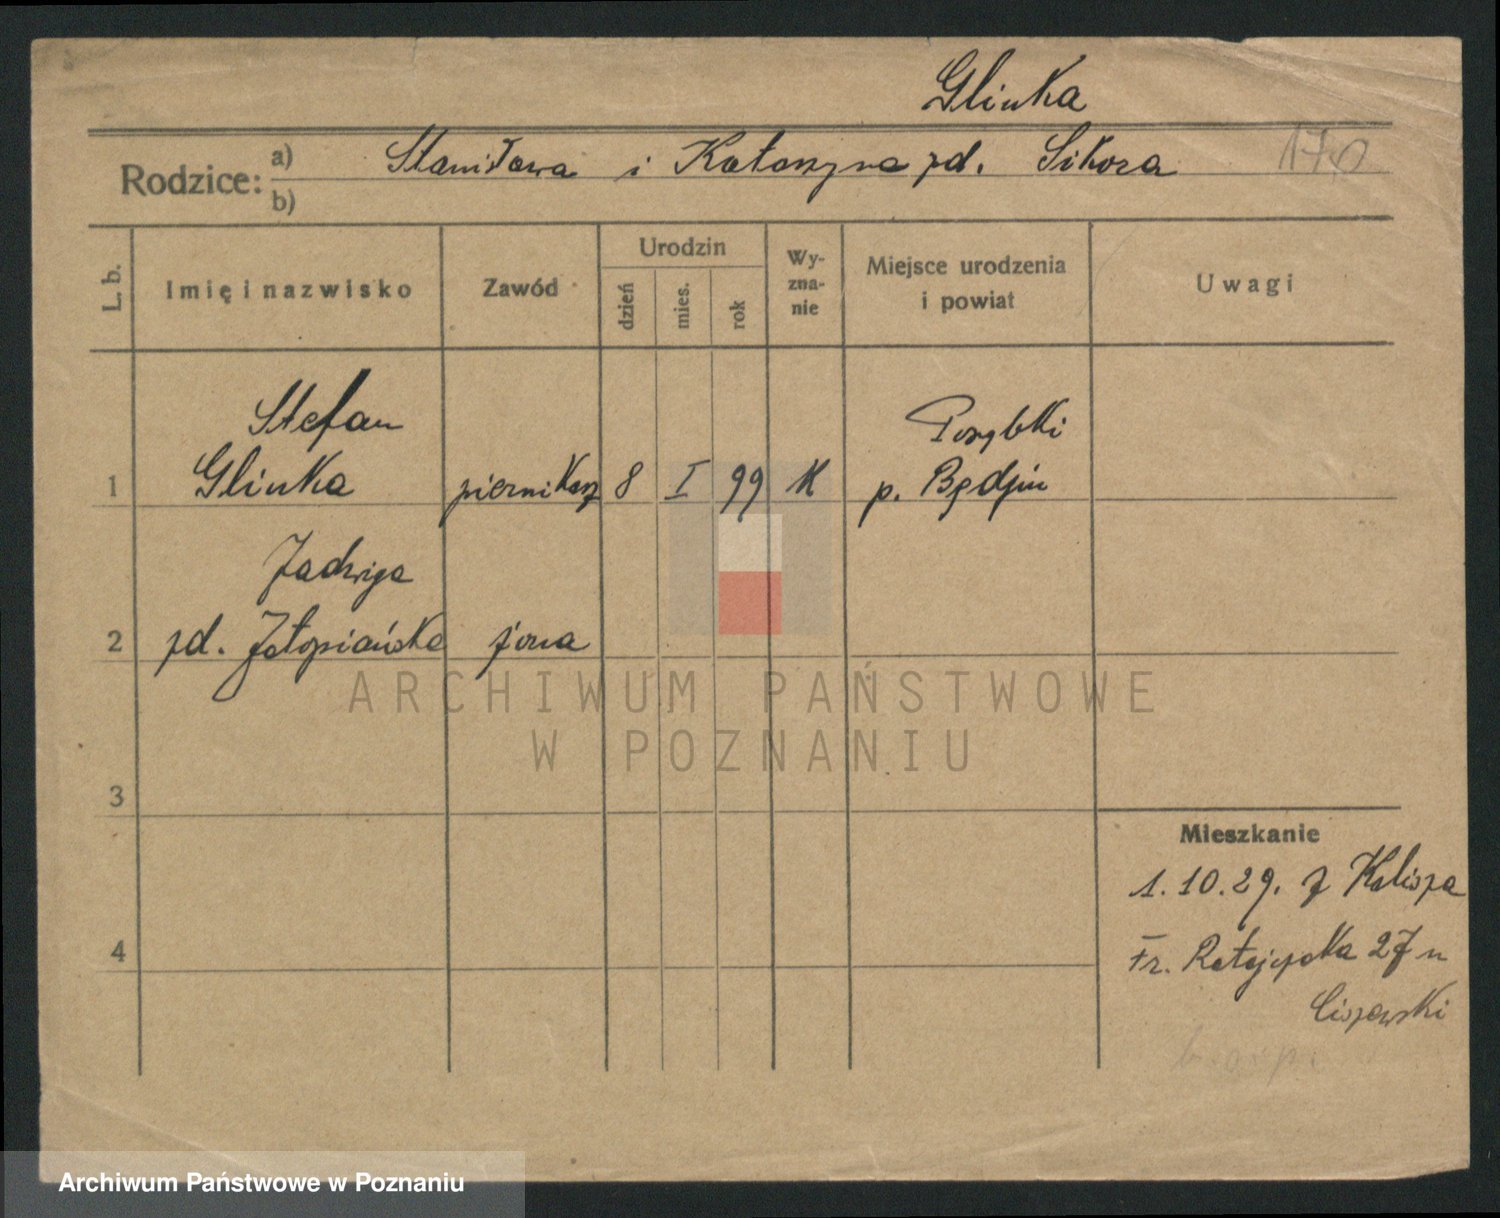 Glinka
170
Rodzice: a) Stanisława i Katarzyna zd. Sikora
b)
L. b.
Imię i nazwisko
Zawód
Urodzin
dzień
mies.
rok
Wy-
zna-
nie
Miejsce urodzenia
i powiat
Uwagi
Stefan
1 Glinka piernikarz 8 I 99 K
p. Będzin
Jadwiga
2 zd. żona
3
4
Mieszkanie
1. 10. 29. z Kalisza
Fr. Ratajczaka 27 u
Ciszewski
ARCHIWUM PAŃSTWOWE
W POZNANIU
Archiwum Państwowe w Poznaniu